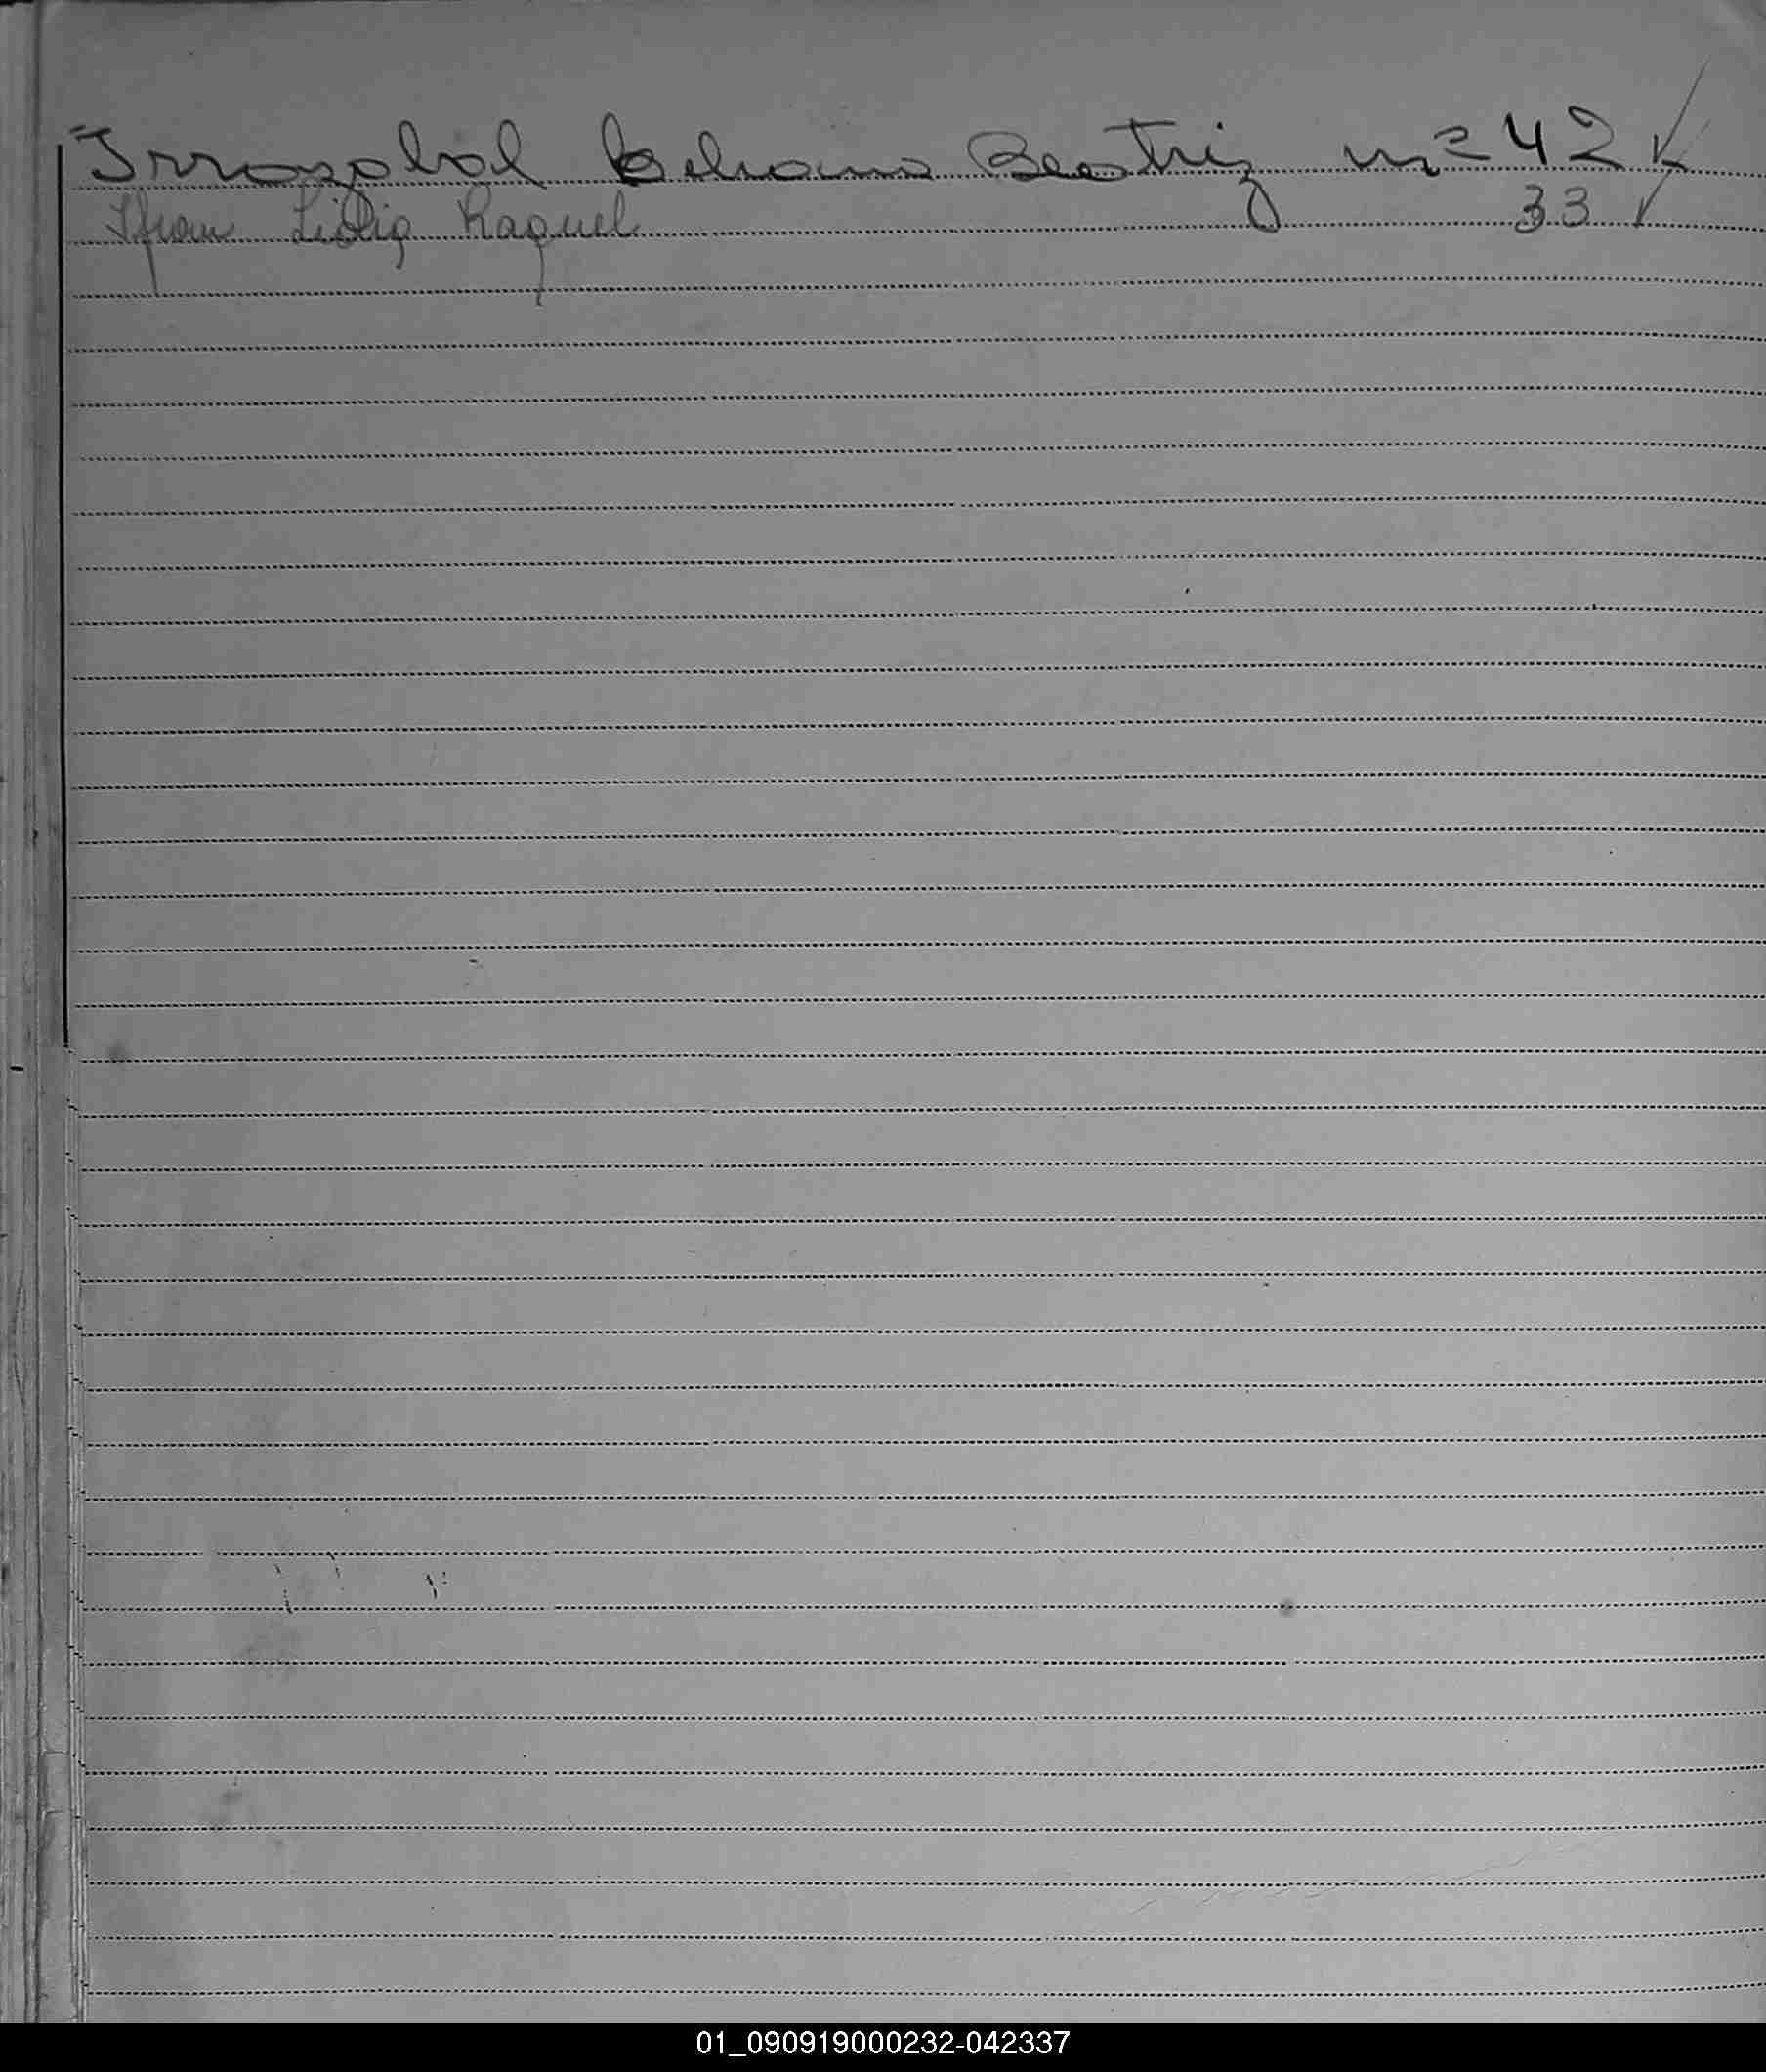 Irrazabal Beatriz nº 42
Lidia Raquel 33
01_090919000232-042337